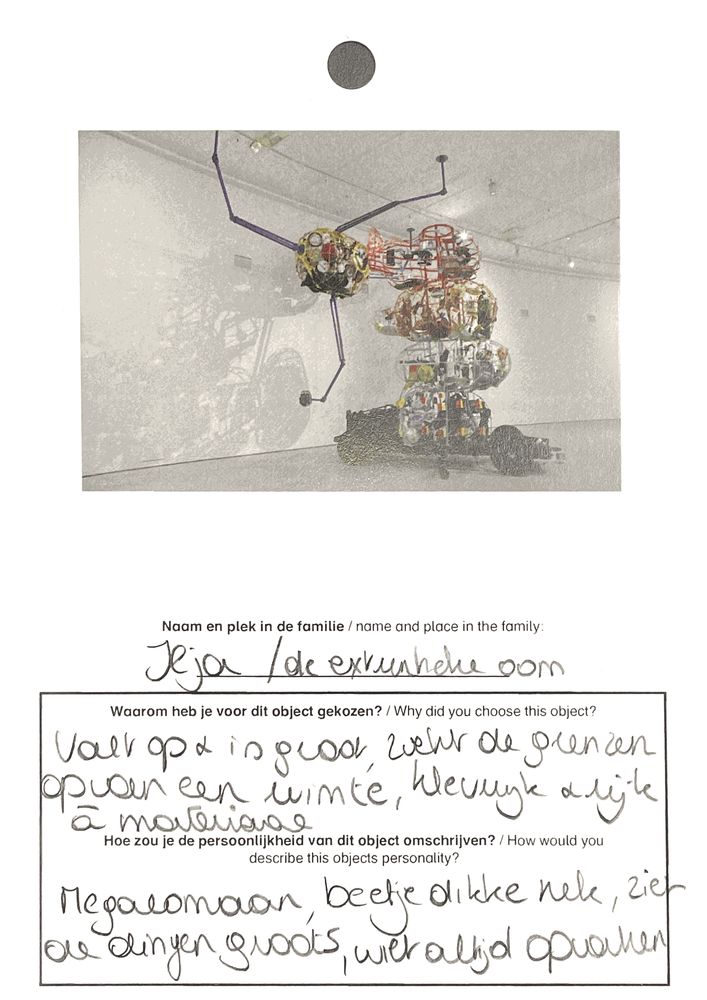 Naam en plek in de familie / name and place in the family:
Ilja / de extentrieke oom
Waarom heb je voor dit object gekozen? / Why did you choose this object?
Valt op & is groot, zoekt de grenzen
op van een ruimte, kleurrijk & rijk
à materiaal
Hoe zou je de persoonlijkheid van dit object omschrijven? / How would you
describe this objects personality?
Megalomaan, beetje dikke nek, ziet
de dingen groots, wilt altijd opvallen